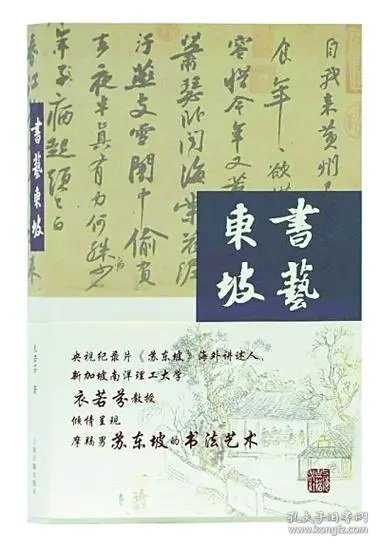 自我来黄州
食年〻欲惜
容惜今年又苦
蕭瑟卧聞海棠花
汙燕支雪闇中偷負
去夜半真有力何殊少
年子病起頭已白
春江
書藝東坡
衣若芬 著
上海古籍出版社
書藝
東坡
央视纪录片《苏东坡》海外讲述人、
新加坡南洋理工大学
衣若芬教授
倾情呈现
摩羯男苏东坡的书法艺术
孔夫子旧书网